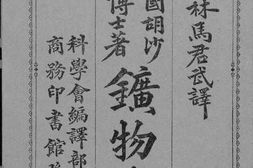 林馬君武譯
國胡沙
博士著
鑛物
科學會編譯部
商務印書館